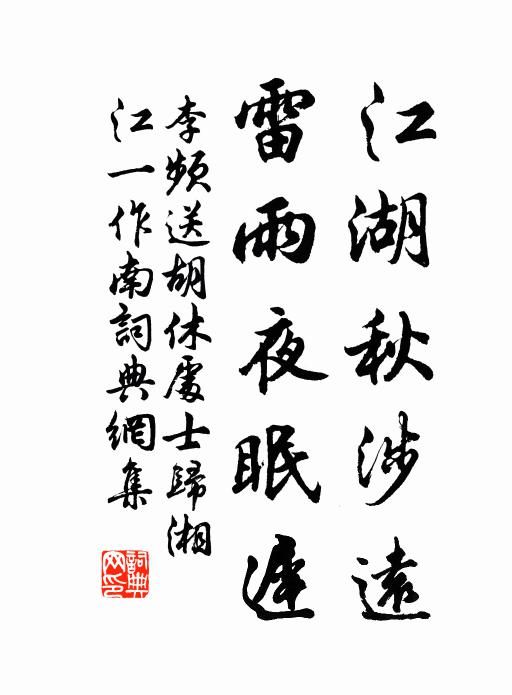 江湖秋涉遠
雷雨夜眠遲
李頻送胡休處士歸湘
江一作南詞典網集
詞典
网印